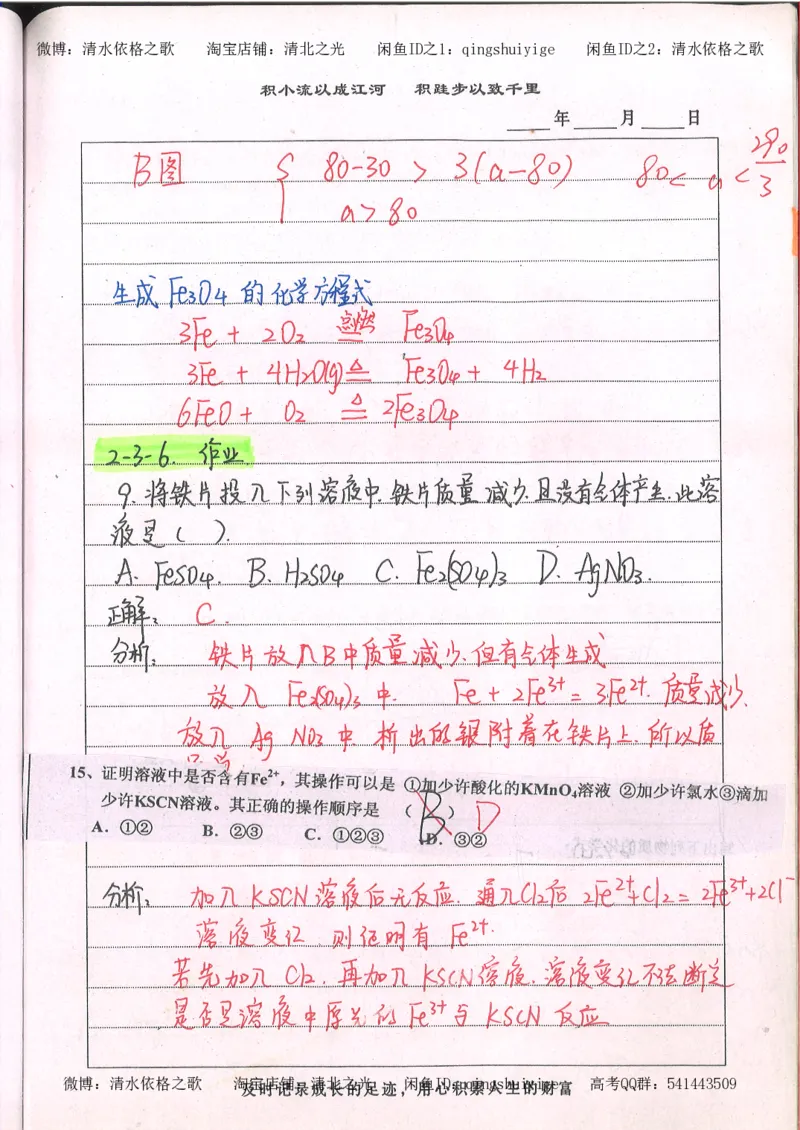 微博：清水依格之歌 淘宝店铺：清北之光 闲鱼ID之1：qingshuiyige 闲鱼ID之2：清水依格之歌
积小流以成江河 积跬步以致千里
年 月 日
B图 { 80-30 > 3(a-80) 80< a < 290/3
a>80
生成Fe3O4的化学方程式
3Fe + 2O2 点燃 Fe3O4
3Fe + 4H2O(g) △= Fe3O4 + 4H2
6FeO + O2 △= 2Fe3O4
2-3-6. 作业
9. 将铁片投入下列溶液中,铁片质量减少,且没有气体产生,此溶
液是( ).
A. FeSO4. B. H2SO4 C. Fe2(SO4)3 D. AgNO3.
正解: C.
分析: 铁片放入B中质量减少,但有气体生成
放入Fe2(SO4)3中. Fe + 2Fe3+ = 3Fe2+. 质量减少.
放入AgNO3中,析出的银附着在铁片上,所以质
15、证明溶液中是否含有Fe2+，其操作可以是 ①加少许酸化的KMnO4溶液 ②加少许氯水③滴加
少许KSCN溶液。其正确的操作顺序是 （ B ） D
A．①② B．②③ C．①②③ D．③②
分析: 加入KSCN溶液后无反应. 通入Cl2后 2Fe2++Cl2=2Fe3++2Cl-
溶液变红,则证明有Fe2+.
若先加入Cl2,再加入KSCN溶液,溶液变红不能断定
是否是溶液中原先的Fe3+与KSCN反应
微博：清水依格之歌 淘宝店铺：清北之光 闲鱼ID：qingshuiyige 高考QQ群：541443509
及时记录成长的足迹，用心积累人生的财富